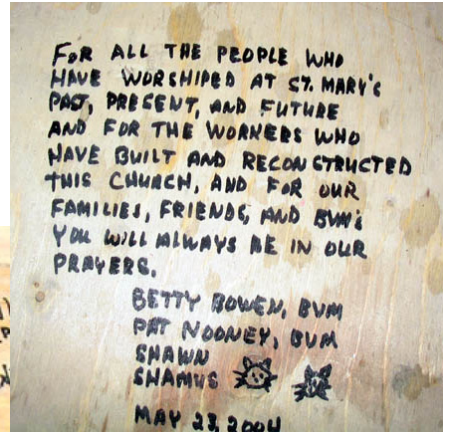 FOR ALL THE PEOPLE WHO
HAVE WORSHIPED AT ST. MARY'S
PAST, PRESENT, AND FUTURE
AND FOR THE WORKERS WHO
HAVE BUILT AND RECONSTRUCTED
THIS CHURCH, AND FOR OUR
FAMILIES, FRIENDS, AND BVM'S
YOU WILL ALWAYS BE IN OUR
PRAYERS.
BETTY BOWEN, BVM
PAT NOONEY, BVM
SHAWN
SHAMUS
MAY 23, 2004